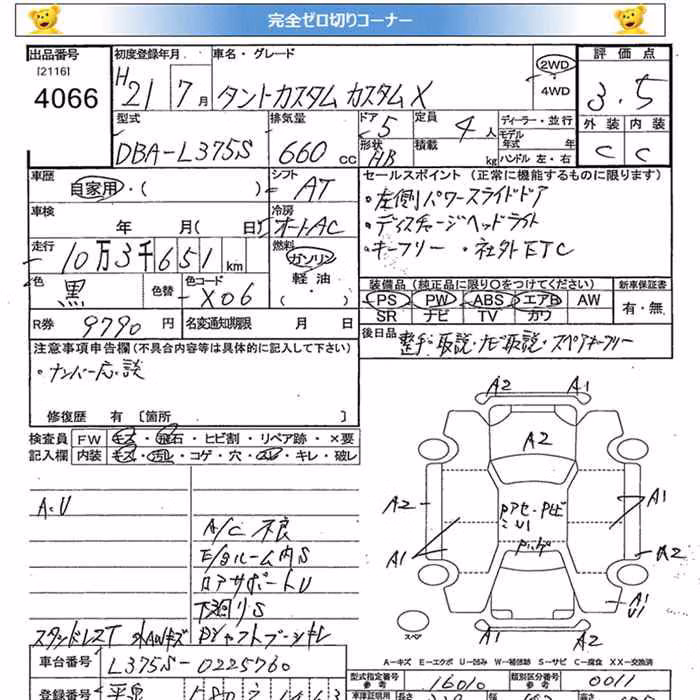 完全ゼロ切りコーナー
出品番号 初度登録年月 車名・グレード 評価点
[2116]
4066
H 21 7月 タントカスタム カスタムX 2WD ・ 4WD 3.5
外装 内装
C C
型式 排気量 ドア 5 定員 4人 ディーラー・並行
DBA-L375S 660cc 形状 HB 積載 kg モデル年式 年
ハンドル 左・右
車歴 自家用・( ) シフト AT
セールスポイント (正常に機能するものに限ります)
・左側パワースライドドア
・ディスチャージヘッドライト
・キーフリー ・社外ETC
車検 年 月( 日) 冷房 オートAC
走行 10万3千651km 燃料 ガソリン 軽油 ・ ( )
色 黒 色替 色コード X06
装備品 (純正品に限り〇をつけてください) 新車保証書
PS PW ABS エアB AW 有・無
SR ナビ TV カワ
R券 9790円 名変通知期限 月 日
後日品 整手・取説・ナビ取説・スペアキーフリー
注意事項申告欄 (不具合内容等は具体的に記入して下さい)
・ナンバー応・談
修復歴 有 [箇所 ]
検査員 FW キズ・飛石・ヒビ割・リペア跡・×要
記入欄 内装 キズ・汚レ・コゲ・穴・スレ・キレ・破レ
A2 A1
A2
A2
A1
A1
A2
A1
U1
A2 A1
スペア
A・U
A/C 不良
E/gルーム内S
ロアサポートU
下廻りS
A-キズ E-エクボ U-凹み W-補修跡 S-サビ C-腐食 XX-交換済
車台番号 L375S-0225760
型式指定番号 16010 類別区分番号 0011
参考 参考
登録番号